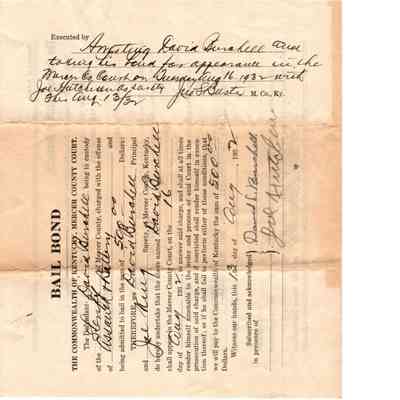 Executed by
Arresting David Burchell and
taking his bond for appearance in the
Mercer Co. Court on Tuesday Aug 16 1932 with
Joe Hutchison as surety
This Aug. 13/32 M. Co., Ky.
BAIL BOND
THE COMMONWEALTH OF KENTUCKY, MERCER COUNTY COURT.
The Defendant, David Burchell being in custody
of the Mercer County, charged with the offense
of Assault & Battery
being admitted to bail in the sum of 500.00 Dollars:
THEREFORE, we David Burchell Principal
and Joe King Surety, a Mercer County, Kentucky,
do hereby undertake that the above named David Burchell
shall appear in the Mercer County Court, on the 16
day of Aug 1932, to answer said charge, and shall at all times
render himself amenable to the order and process of said Court in the
prosecution of said charge, and if convicted shall render himself in execu-
tion thereof; or if he shall fail to perform either of these conditions, that
we will pay to the Commonwealth of Kentucky the sum of 500.00
Dollars.
Witness our hands, this 12 day of Aug 1932
Subscribed and acknowledged David L. Burchell
in presence of Joe